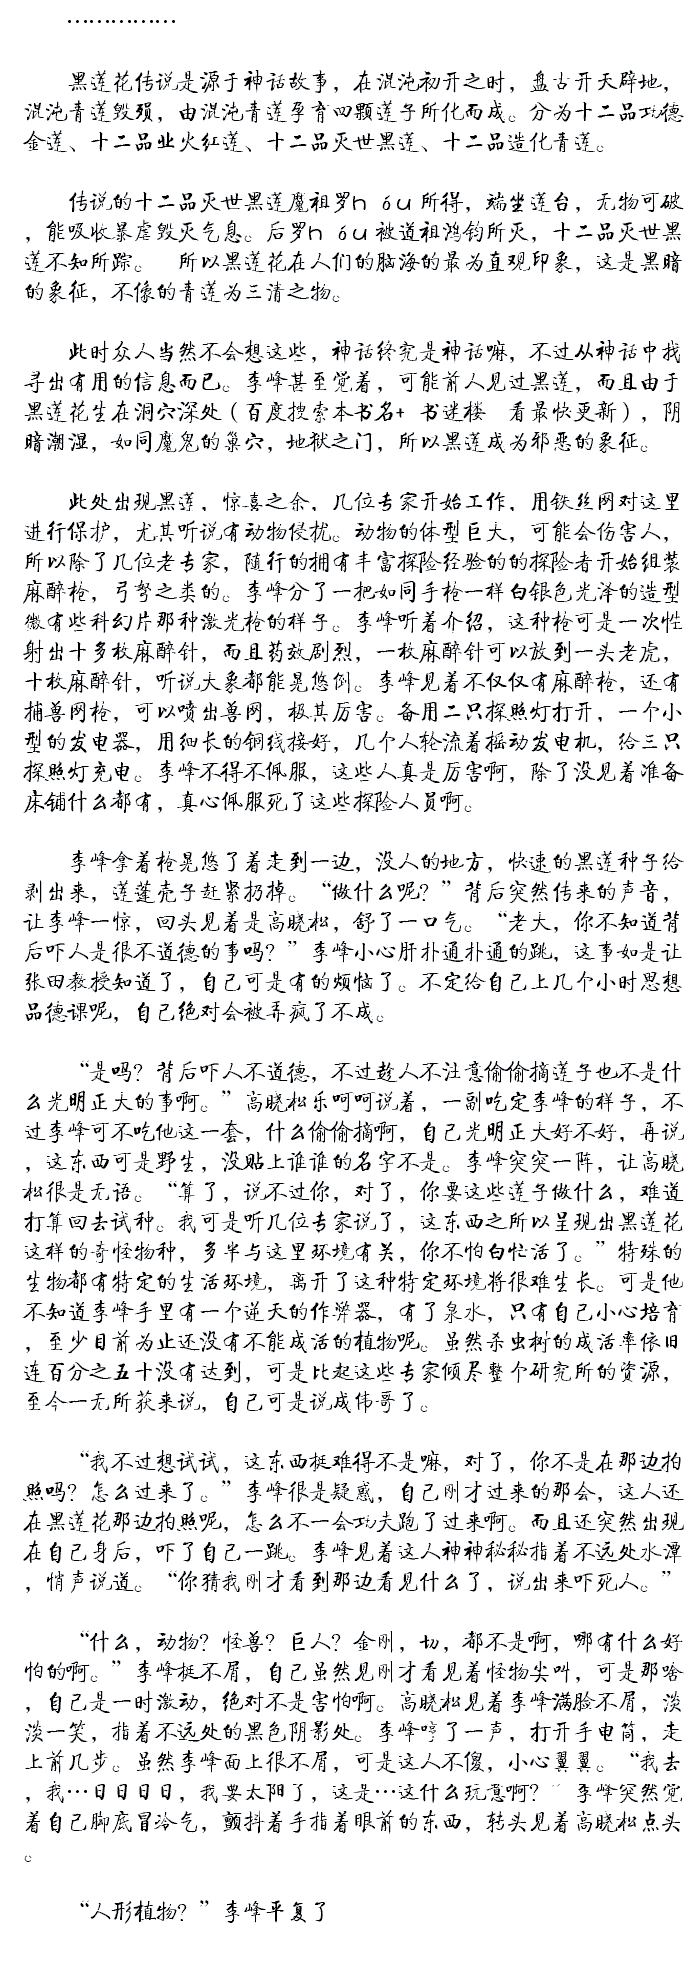 ……………
黑莲花传说是源于神话故事，在混沌初开之时，盘古开天辟地，
混沌青莲毁殒，由混沌青莲孕育四颗莲子所化而成。分为十二品功德
金莲、十二品业火红莲、十二品灭世黑莲、十二品造化青莲。
传说的十二品灭世黑莲魔祖罗h óu所得，端坐莲台，无物可破
，能吸收暴虐毁灭气息。后罗h óu被道祖鸿钧所灭，十二品灭世黑
莲不知所踪。 所以黑莲花在人们的脑海的最为直观印象，这是黑暗
的象征，不像的青莲为三清之物。
此时众人当然不会想这些，神话终究是神话嘛，不过从神话中找
寻出有用的信息而已。李峰甚至觉着，可能前人见过黑莲，而且由于
黑莲花生在洞穴深处（百度搜索本书名+ 书迷楼 看最快更新），阴
暗潮湿，如同魔鬼的巢穴，地狱之门，所以黑莲成为邪恶的象征。
此处出现黑莲，惊喜之余，几位专家开始工作，用铁丝网对这里
进行保护，尤其听说有动物侵扰。动物的体型巨大，可能会伤害人，
所以除了几位老专家，随行的拥有丰富探险经验的的探险者开始组装
麻醉枪，弓弩之类的。李峰分了一把如同手枪一样白银色光泽的造型
微有些科幻片那种激光枪的样子。李峰听着介绍，这种枪可是一次性
射出十多枚麻醉针，而且药效剧烈，一枚麻醉针可以放到一头老虎，
十枚麻醉针，听说大象都能晃悠倒。李峰见着不仅仅有麻醉枪，还有
捕兽网枪，可以喷出兽网，极其厉害。备用二只探照灯打开，一个小
型的发电器，用细长的铜线接好，几个人轮流着摇动发电机，给三只
探照灯充电。李峰不得不佩服，这些人真是厉害啊，除了没见着准备
床铺什么都有，真心佩服死了这些探险人员啊。
李峰拿着枪晃悠了着走到一边，没人的地方，快速的黑莲种子给
剥出来，莲蓬壳子赶紧扔掉。“做什么呢？”背后突然传来的声音，
让李峰一惊，回头见着是高晓松，舒了一口气。“老大，你不知道背
后吓人是很不道德的事吗？”李峰小心肝朴通朴通的跳，这事如是让
张田教授知道了，自己可是有的烦恼了。不定给自己上几个小时思想
品德课呢，自己绝对会被弄疯了不成。
“是吗？背后吓人不道德，不过趁人不注意偷偷摘莲子也不是什
么光明正大的事啊。”高晓松乐呵呵说着，一副吃定李峰的样子，不
过李峰可不吃他这一套，什么偷偷摘啊，自己光明正大好不好，再说
，这东西可是野生，没贴上谁谁的名字不是。李峰突突一阵，让高晓
松很是无语。“算了，说不过你，对了，你要这些莲子做什么，难道
打算回去试种。我可是听几位专家说了，这东西之所以呈现出黑莲花
这样的奇怪物种，多半与这里环境有关，你不怕白忙活了。”特殊的
生物都有特定的生活环境，离开了这种特定环境将很难生长。可是他
不知道李峰手里有一个逆天的作弊器，有了泉水，只有自己小心培育
，至少目前为止还没有不能成活的植物呢。虽然杀虫树的成活率依旧
连百分之五十没有达到，可是比起这些专家倾尽整个研究所的资源，
至今一无所获来说，自己可是说成伟哥了。
“我不过想试试，这东西挺难得不是嘛，对了，你不是在那边拍
照吗？怎么过来了。”李峰很是疑惑，自己刚才过来的那会，这人还
在黑莲花那边拍照呢，怎么不一会功夫跑了过来啊。而且还突然出现
在自己身后，吓了自己一跳。李峰见着这人神神秘秘指着不远处水潭
，悄声说道。“你猜我刚才看到那边看见什么了，说出来吓死人。”
“什么，动物？怪兽？巨人？金刚，切，都不是啊，哪有什么好
怕的啊。”李峰挺不屑，自己虽然见刚才看见着怪物尖叫，可是那啥
，自己是一时激动，绝对不是害怕啊。高晓松见着李峰满脸不屑，淡
淡一笑，指着不远处的黑色阴影处。李峰哼了一声，打开手电筒，走
上前几步。虽然李峰面上很不屑，可是这人不傻，小心翼翼。“我去
，我…日日日日，我要太阳了，这是…这什么玩意啊？”李峰突然觉
着自己脚底冒冷气，颤抖着手指着眼前的东西，转头见着高晓松点头
。
“人形植物？”李峰平复了